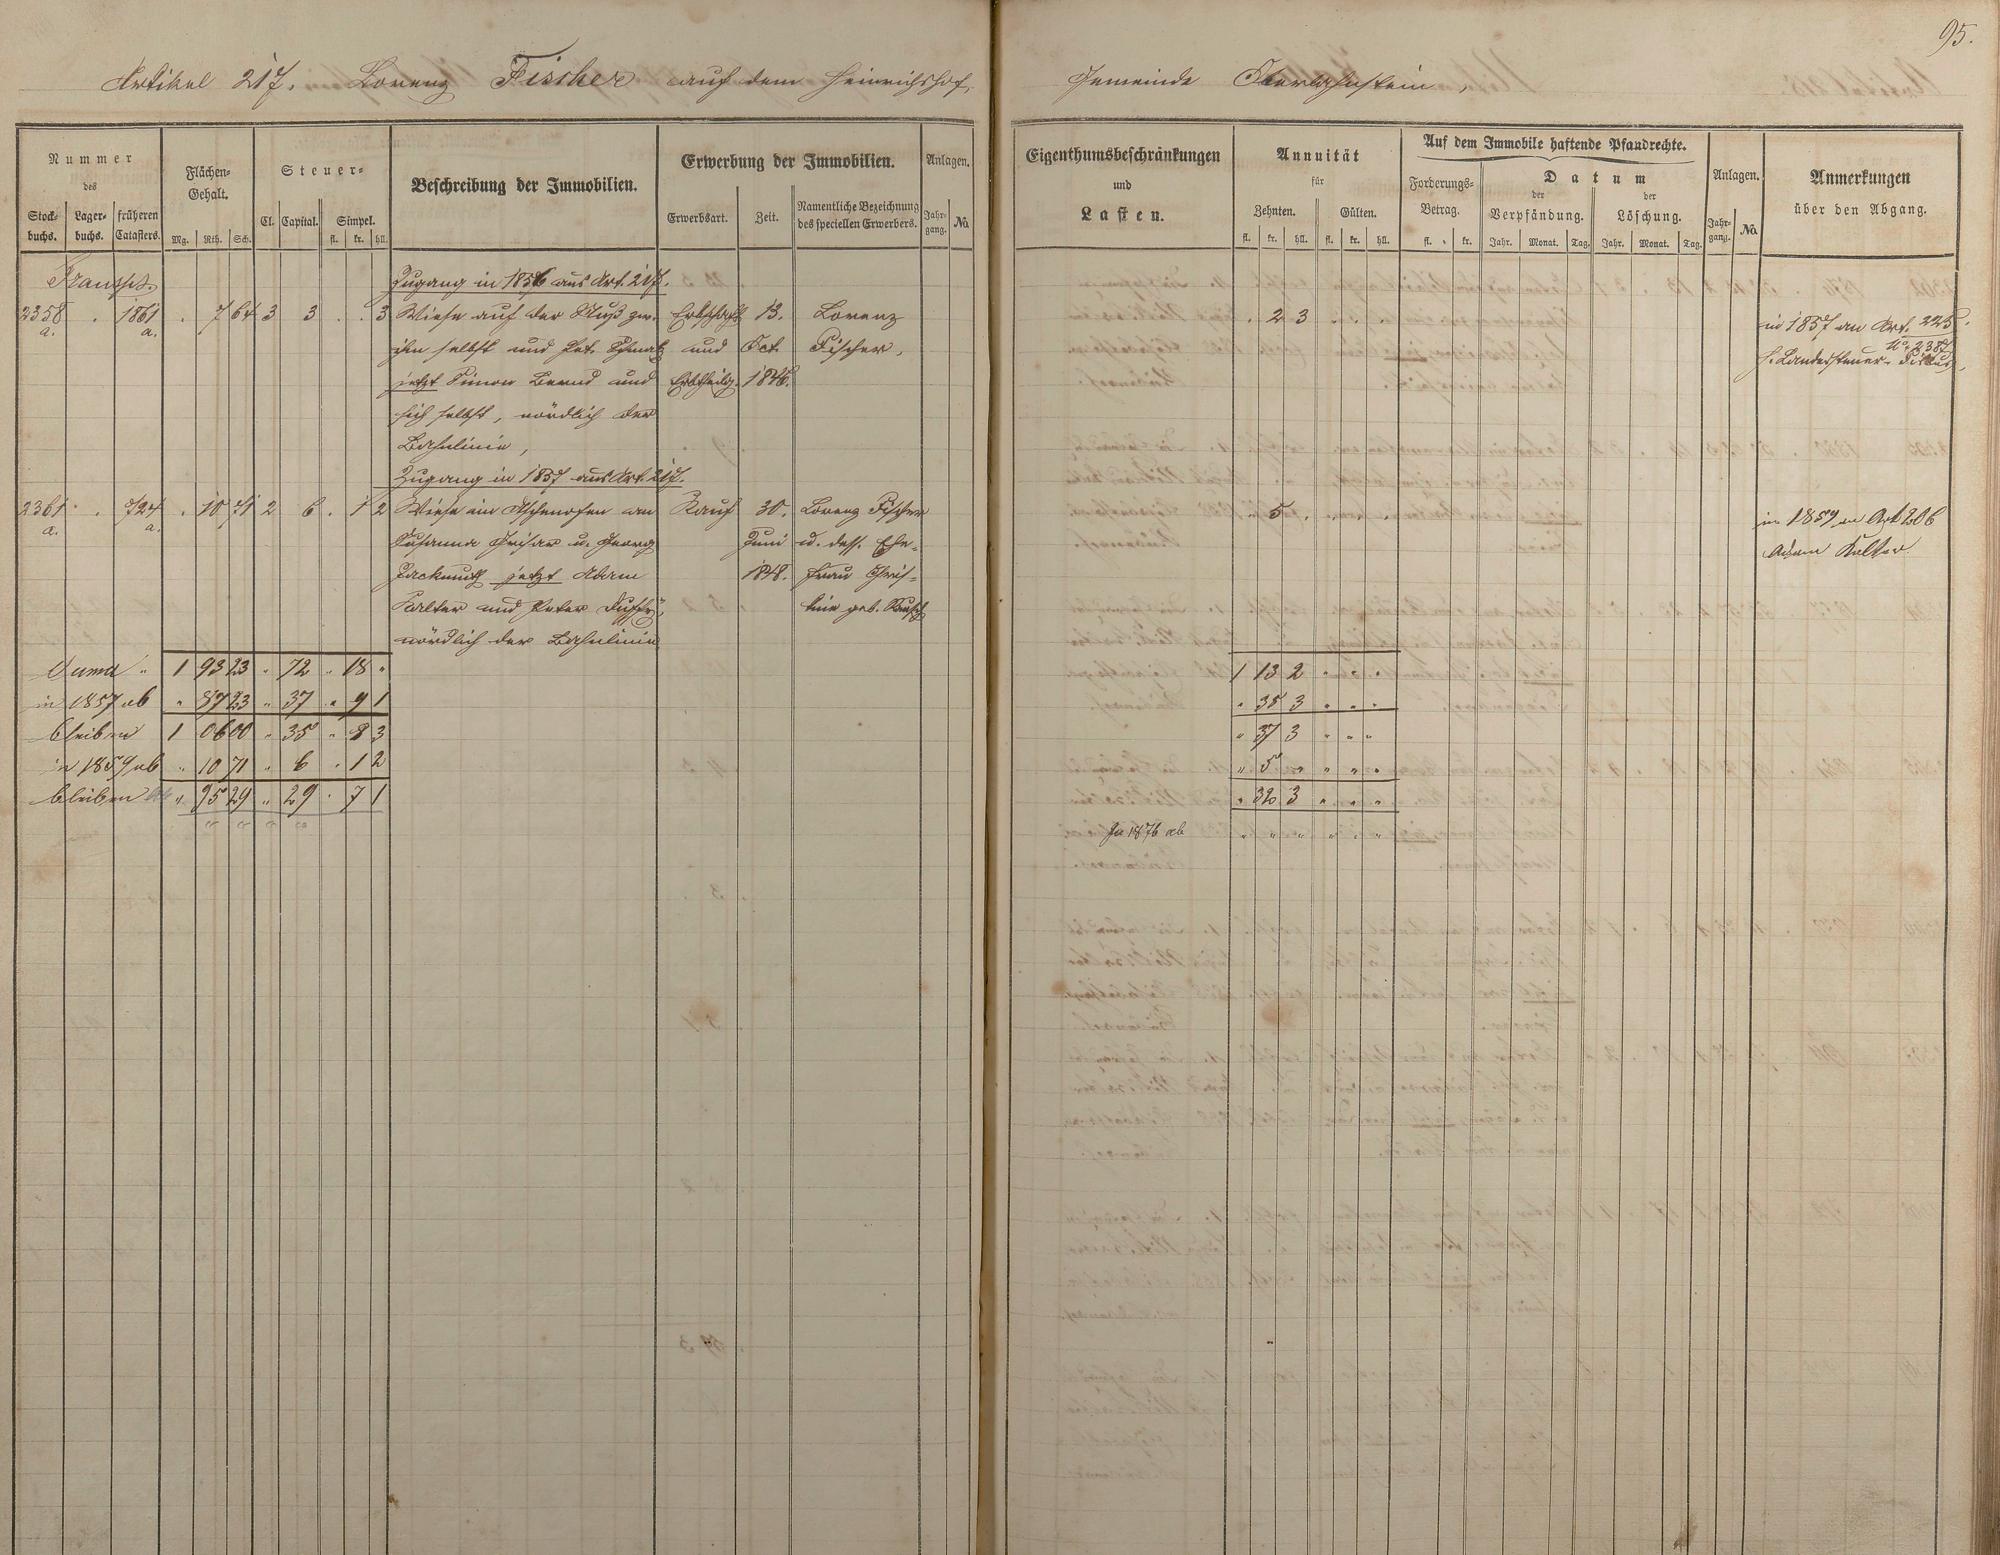 95.
Artikel 217. Lorenz Fischer auf dem Heinrichshof,
Gemeinde Oberlahnstein,
Nummer des
Stock-buchs. Lager-buchs. früheren Catasters.
Flächen-Gehalt.
Mg. Rth. Sch.
Steuer-
Cl. Capital. Simpel.
fl. kr. hll.
Beschreibung der Immobilien.
Erwerbung der Immobilien.
Erwerbsart. Zeit. Namentliche Bezeichnung des speciellen Erwerbers.
Anlagen.
Jahr-gang. No.
Eigenthumsbeschränkungen und Lasten.
Annuität für
Zehnten. Gülten.
fl. kr. hll. fl. kr. hll.
Auf dem Immobile haftende Pfandrechte.
Forderungs-Betrag.
fl. kr.
Datum
der Verpfändung. der Löschung.
Jahr. Monat. Tag. Jahr. Monat. Tag.
Anlagen.
Jahr-gang. No.
Anmerkungen über den Abgang.
Transpt.
Zugang in 1856 aus Art. 217.
2358 a. . 1861 a. . 7 64 3 3 . . 3 Wiese auf der zw. Erbschaft 13. Lorenz . 2 3 . . . in 1857 an Art. 225
ihm selbst und Pet. Schmalz und Oct. Fischer, No 2387
jetzt Simon Bernd und Erbtheilg. 1846. H. Landessteuer-Fiskus,
sich selbst, nördlich der
Bahnlinie,
Zugang in 1857 aus Art. 217.
2361 a. . 724 a. . 10 71 2 6 . 1 2 Wiese im Aschenofen an Kauf 30. Lorenz Fischer . 5 . . . . in 1859 an Art 206
Susanna und Georg Juni u. dess. Ehe- Adam Kalter
Zackmuth jetzt Adam 1848. frau Chris-
Kalter und Peter tine geb.
nördlich der Bahnlinie
Suma " 1 93 23 " 72 " 18 " 1 13 2 " " "
in 1857 ab " 87 23 " 37 " 9 1 " 35 3 " " "
bleiben 1 06 00 " 35 " 8 3 " 37 3 " " "
in 1859 ab " 10 71 " 6 " 1 2 " 5 " " " "
bleiben " 95 29 " 29 " 7 1 " 32 3 " " "
In 1876 ab " " " " " "